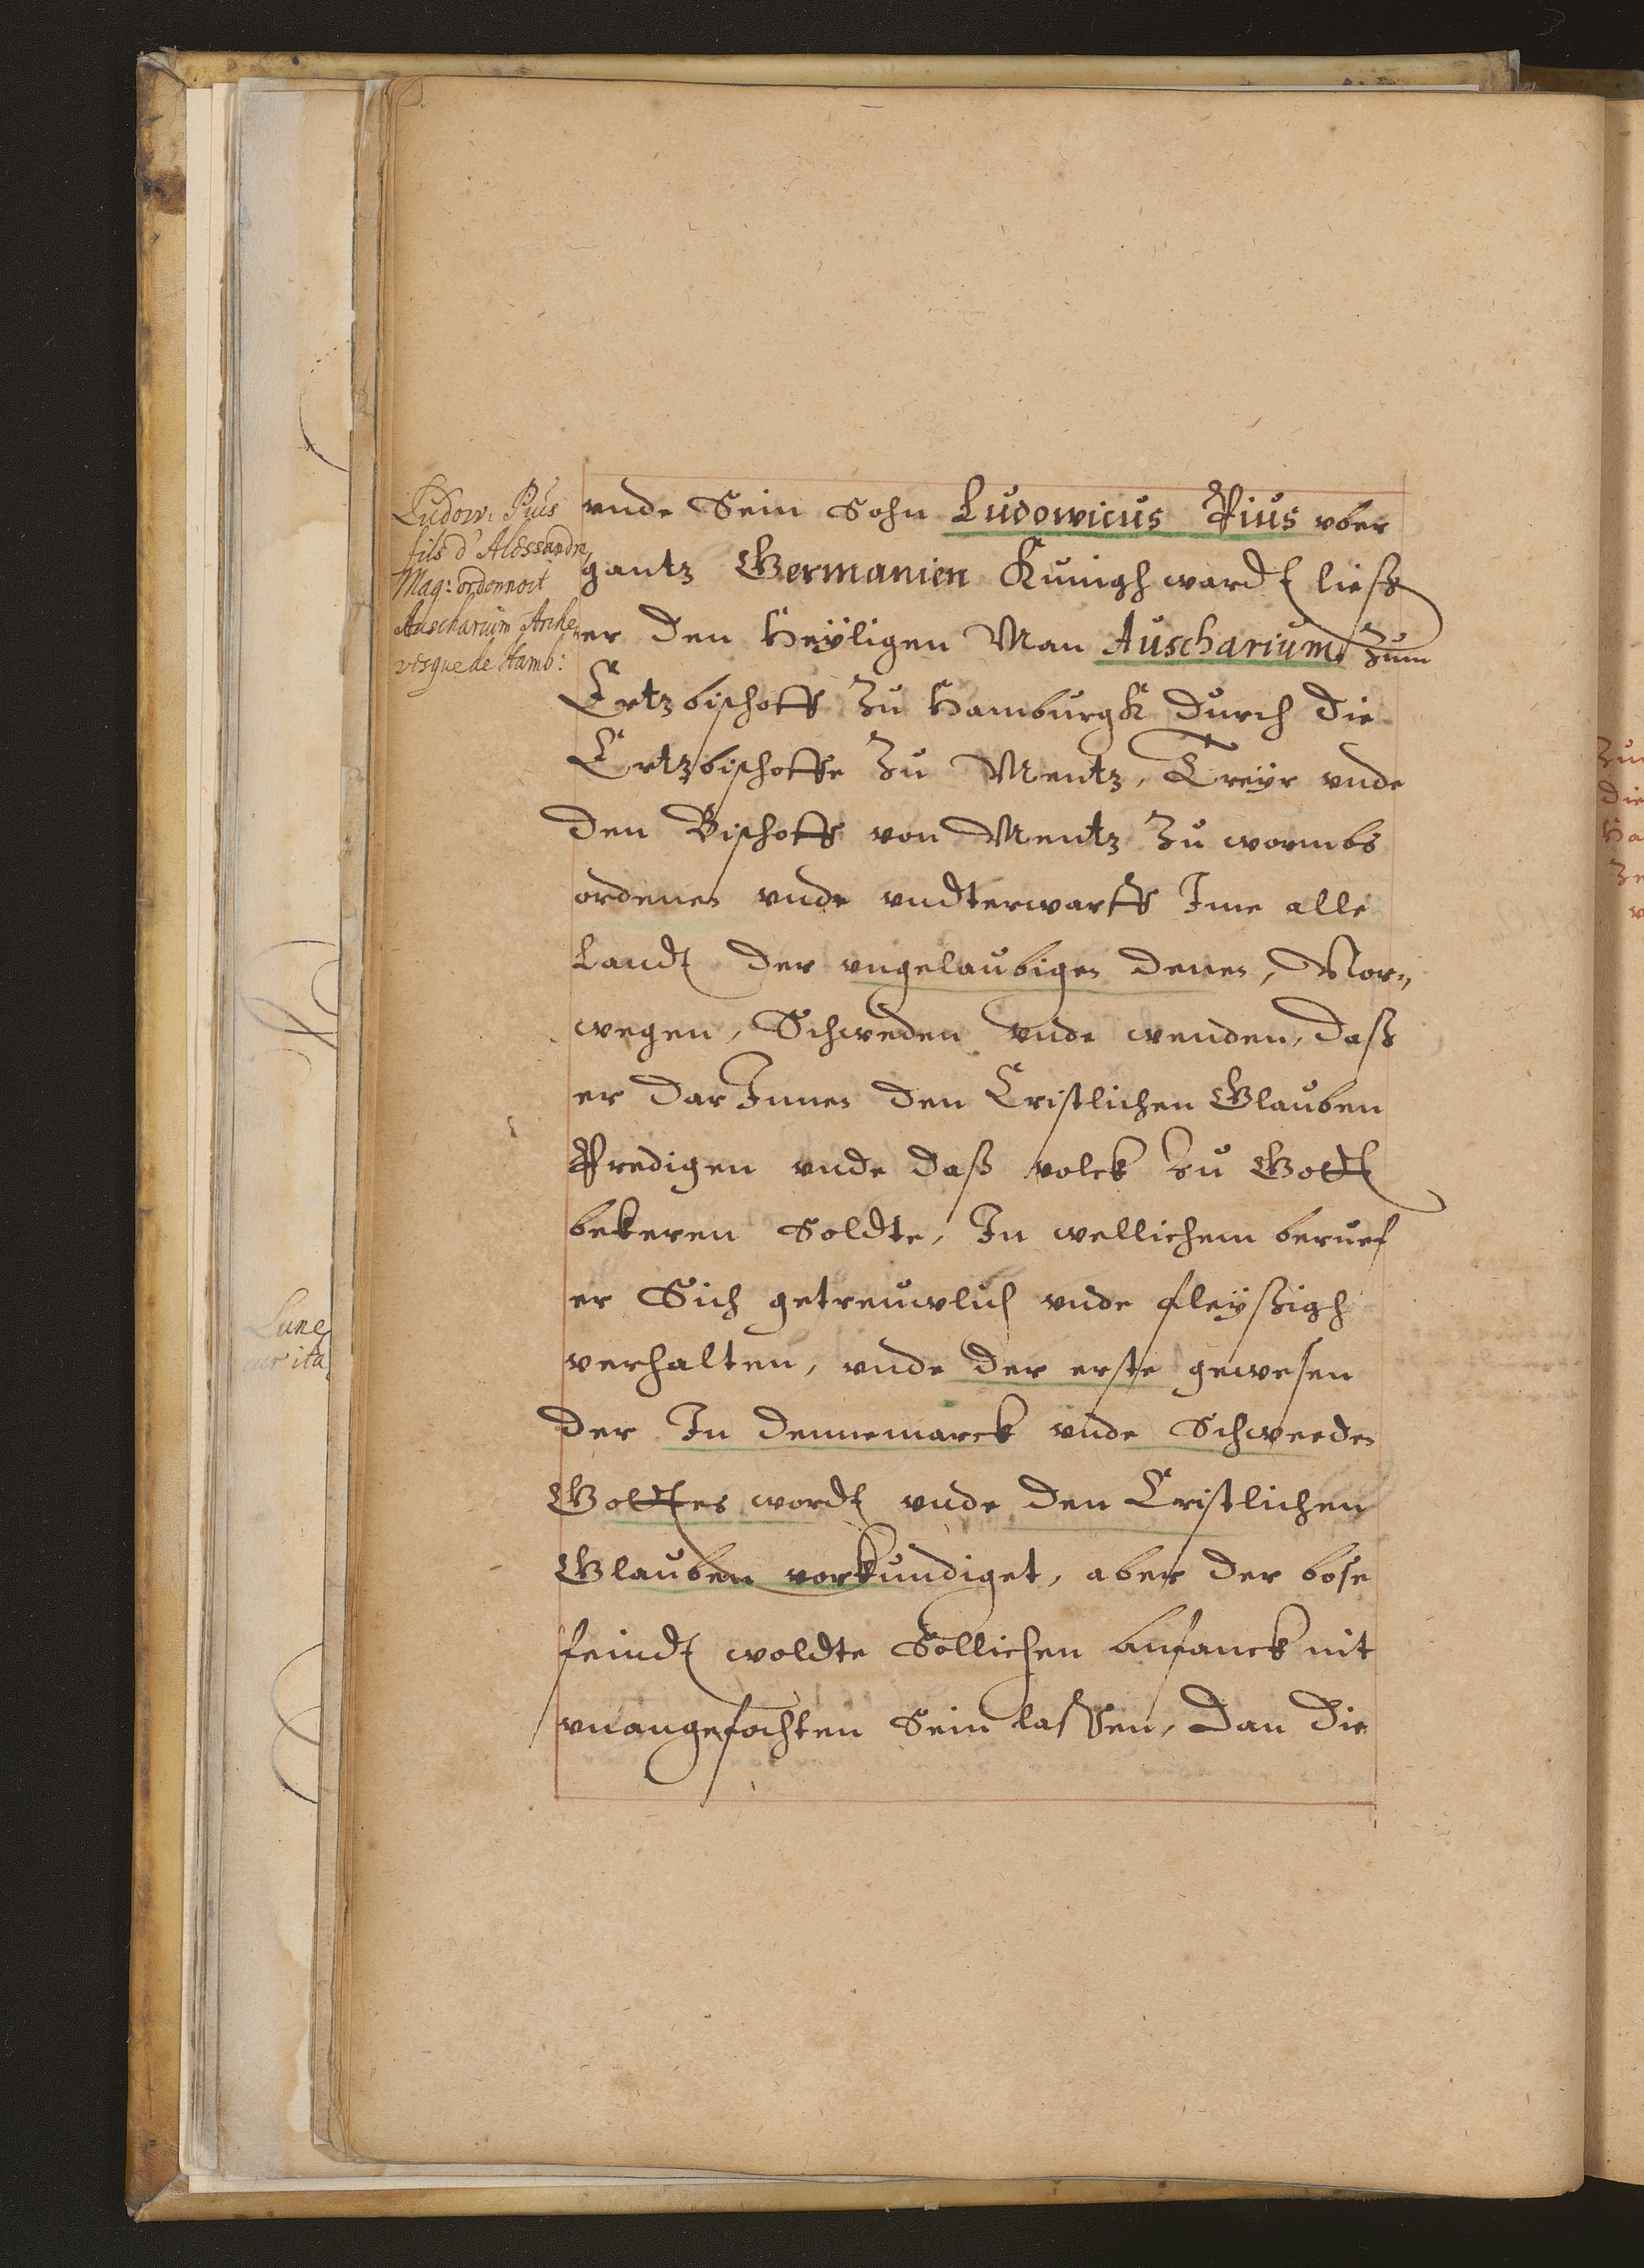 Ludow: Pius
fils d'Alessandre
Mag: ordonnoit
Auscharium Arche„
vesque de Hamb:
vnde Sein Sohn Ludowicus Pius vber
gantz Germanien Kunigh wardt ließ
er den Heyligen Man Auscharium Zum
Ertzbischoff Zu Hamburgk durch die
Ertzbischoffe Zu Mentz, Treyr vnde
den Bischoff von Mentz Zu wormbs
ordenen vnde vndterwarff Ime alle
Landt der vngelaubigen denen, Nor„
wegen, Schweden vnde wenden, daß
er dar Innen den Cristlichen Glauben
Predigen vnde daß volck Zu Gott
bekeren Soldte, In wellichem beruef
er Sich getreuwlich vnde fleyßigh
verhalten, vnde der erste gewesen
der In Dennemarck vnde Schweeden
Gottes wordt vnde den Cristlichen
Glauben vorkundiget, aber der bose
feindt woldte Sollichen anfanck nit
vnangefochten Sein lassen, Dan die
Lune
Zu
die
Ha